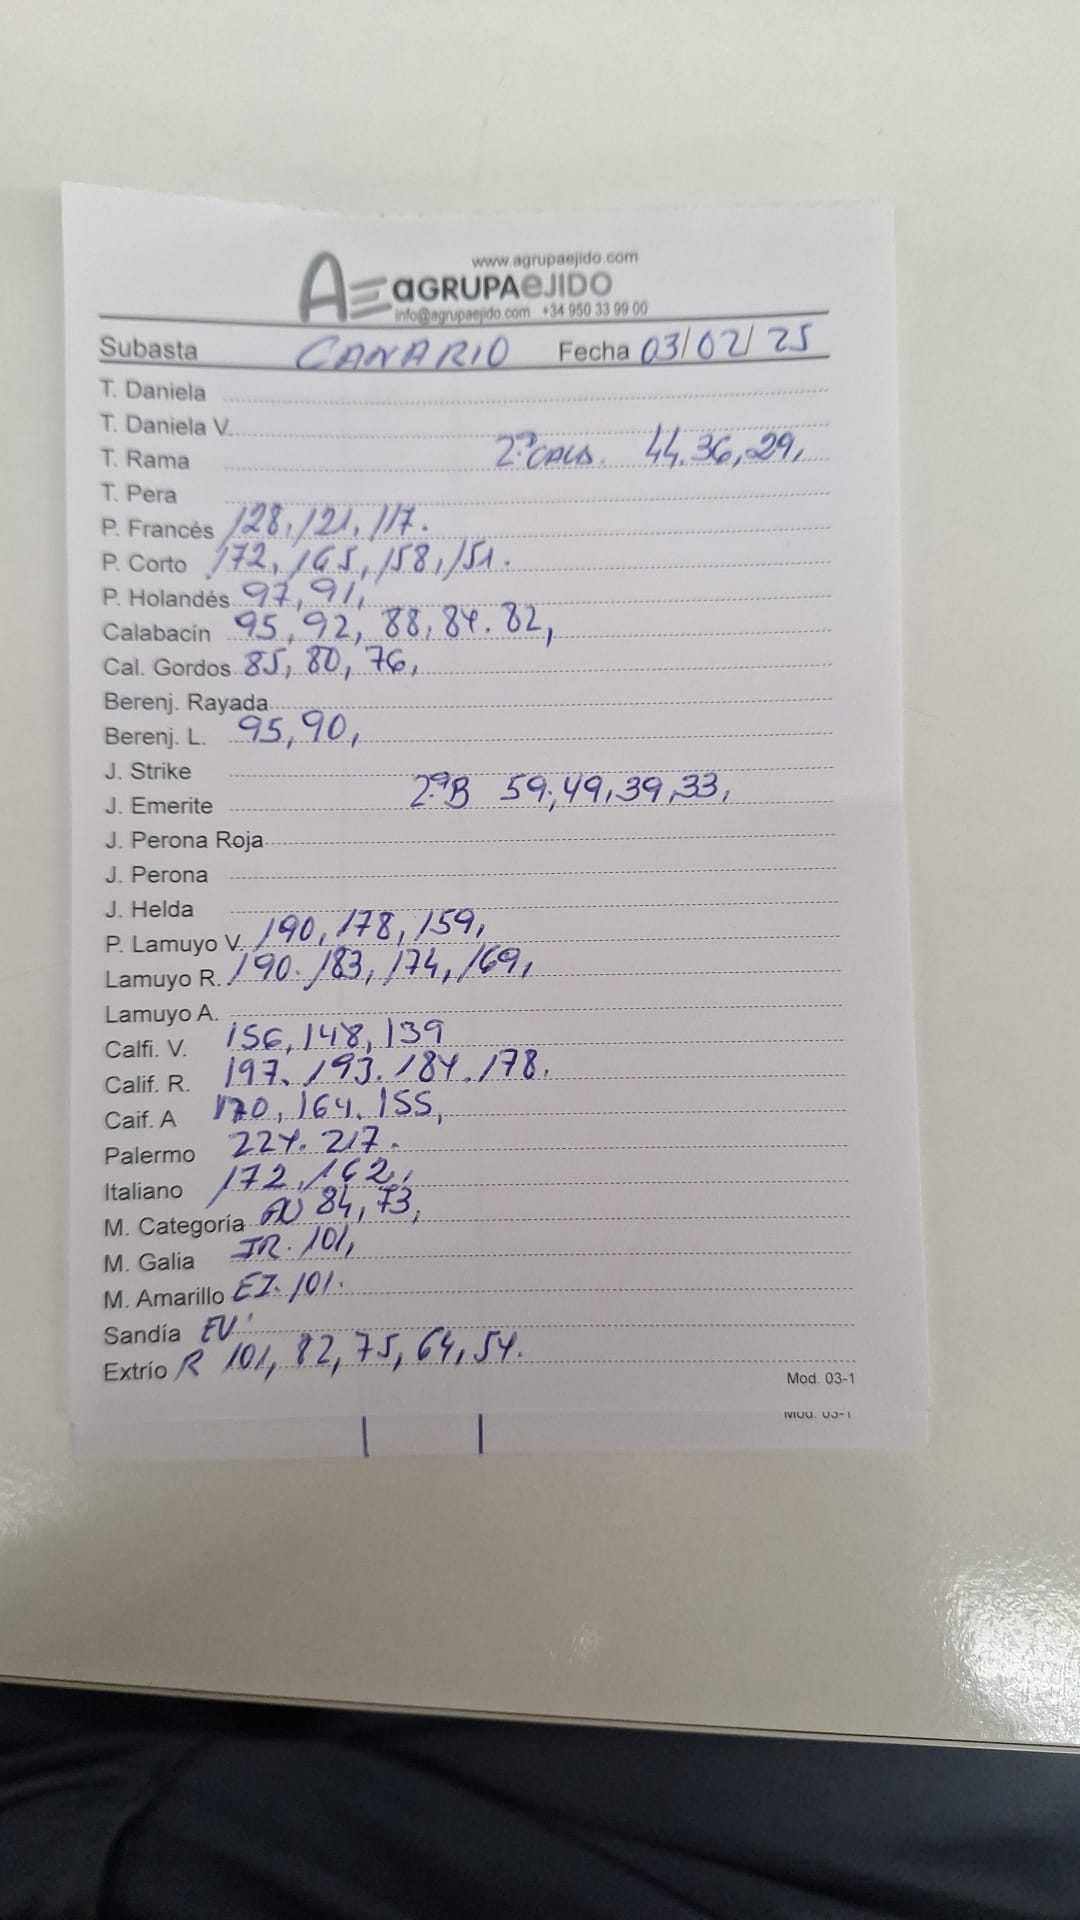 www.agrupaejido.com
AE aGRUPAeJIDO
info@agrupaejido.com +34 950 33 99 00
Subasta CANARIO Fecha 03/02/25
T. Daniela
T. Daniela V.
T. Rama 2ª CALB. 44. 36, 29,
T. Pera
P. Francés 128, 121, 117.
P. Corto 172, 165, 158, 151.
P. Holandés 97, 91,
Calabacín 95, 92, 88, 84. 82,
Cal. Gordos 85, 80, 76,
Berenj. Rayada
Berenj. L. 95, 90,
J. Strike
J. Emerite 2ªB 59, 49, 39, 33,
J. Perona Roja
J. Perona
J. Helda
P. Lamuyo V. 190, 178, 159,
Lamuyo R. 190. 183, 174, 169,
Lamuyo A.
Calfi. V. 156, 148, 139
Calif. R. 197. 193. 184. 178.
Caif. A 170, 164. 155,
Palermo 224. 217.
Italiano 172, 162,
M. Categoría 84, 73,
M. Galia JR. 101,
M. Amarillo EZ. 101.
Sandía EV
Extrío R 101, 82, 75, 64, 54.
Mod. 03-1
Mod. 03-1